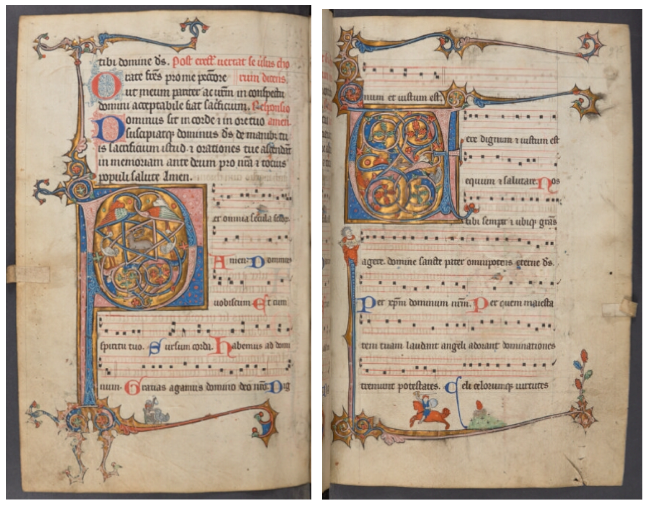 tibi domine ds. Post
Orate fres pro me peccore
Ut meum pariter ac urm in conspectu
domini acceptabile fiat sacrificium. Responsio
Dominus sit in corde ⁊ in ore tuo amen
suscipiatqꝫ dominus ds de manibꝫ tu
is sacrificium istud. ⁊ orationes tue
in memoriam ante deum pro nra ⁊ totius
populi salute Amen.
Per omnia secula
Amen. Dominus
vobiscum Et cum
spiritu tuo. Sursum corda. Habemus ad domi
num. Gratias agamus domino deo nro. Dig
num et iustum est.
Vere dignum ⁊ iustum est
equum ⁊ salutare. Nos
tibi semper ⁊ ubiqꝫ gras
agere. domine sancte pater omnipotens eterne ds.
Per xpm dominum nrm. Per quem maiesta
tem tuam laudant angeli adorant dominationes
tremunt potestates. Celi celorumqꝫ virtutes